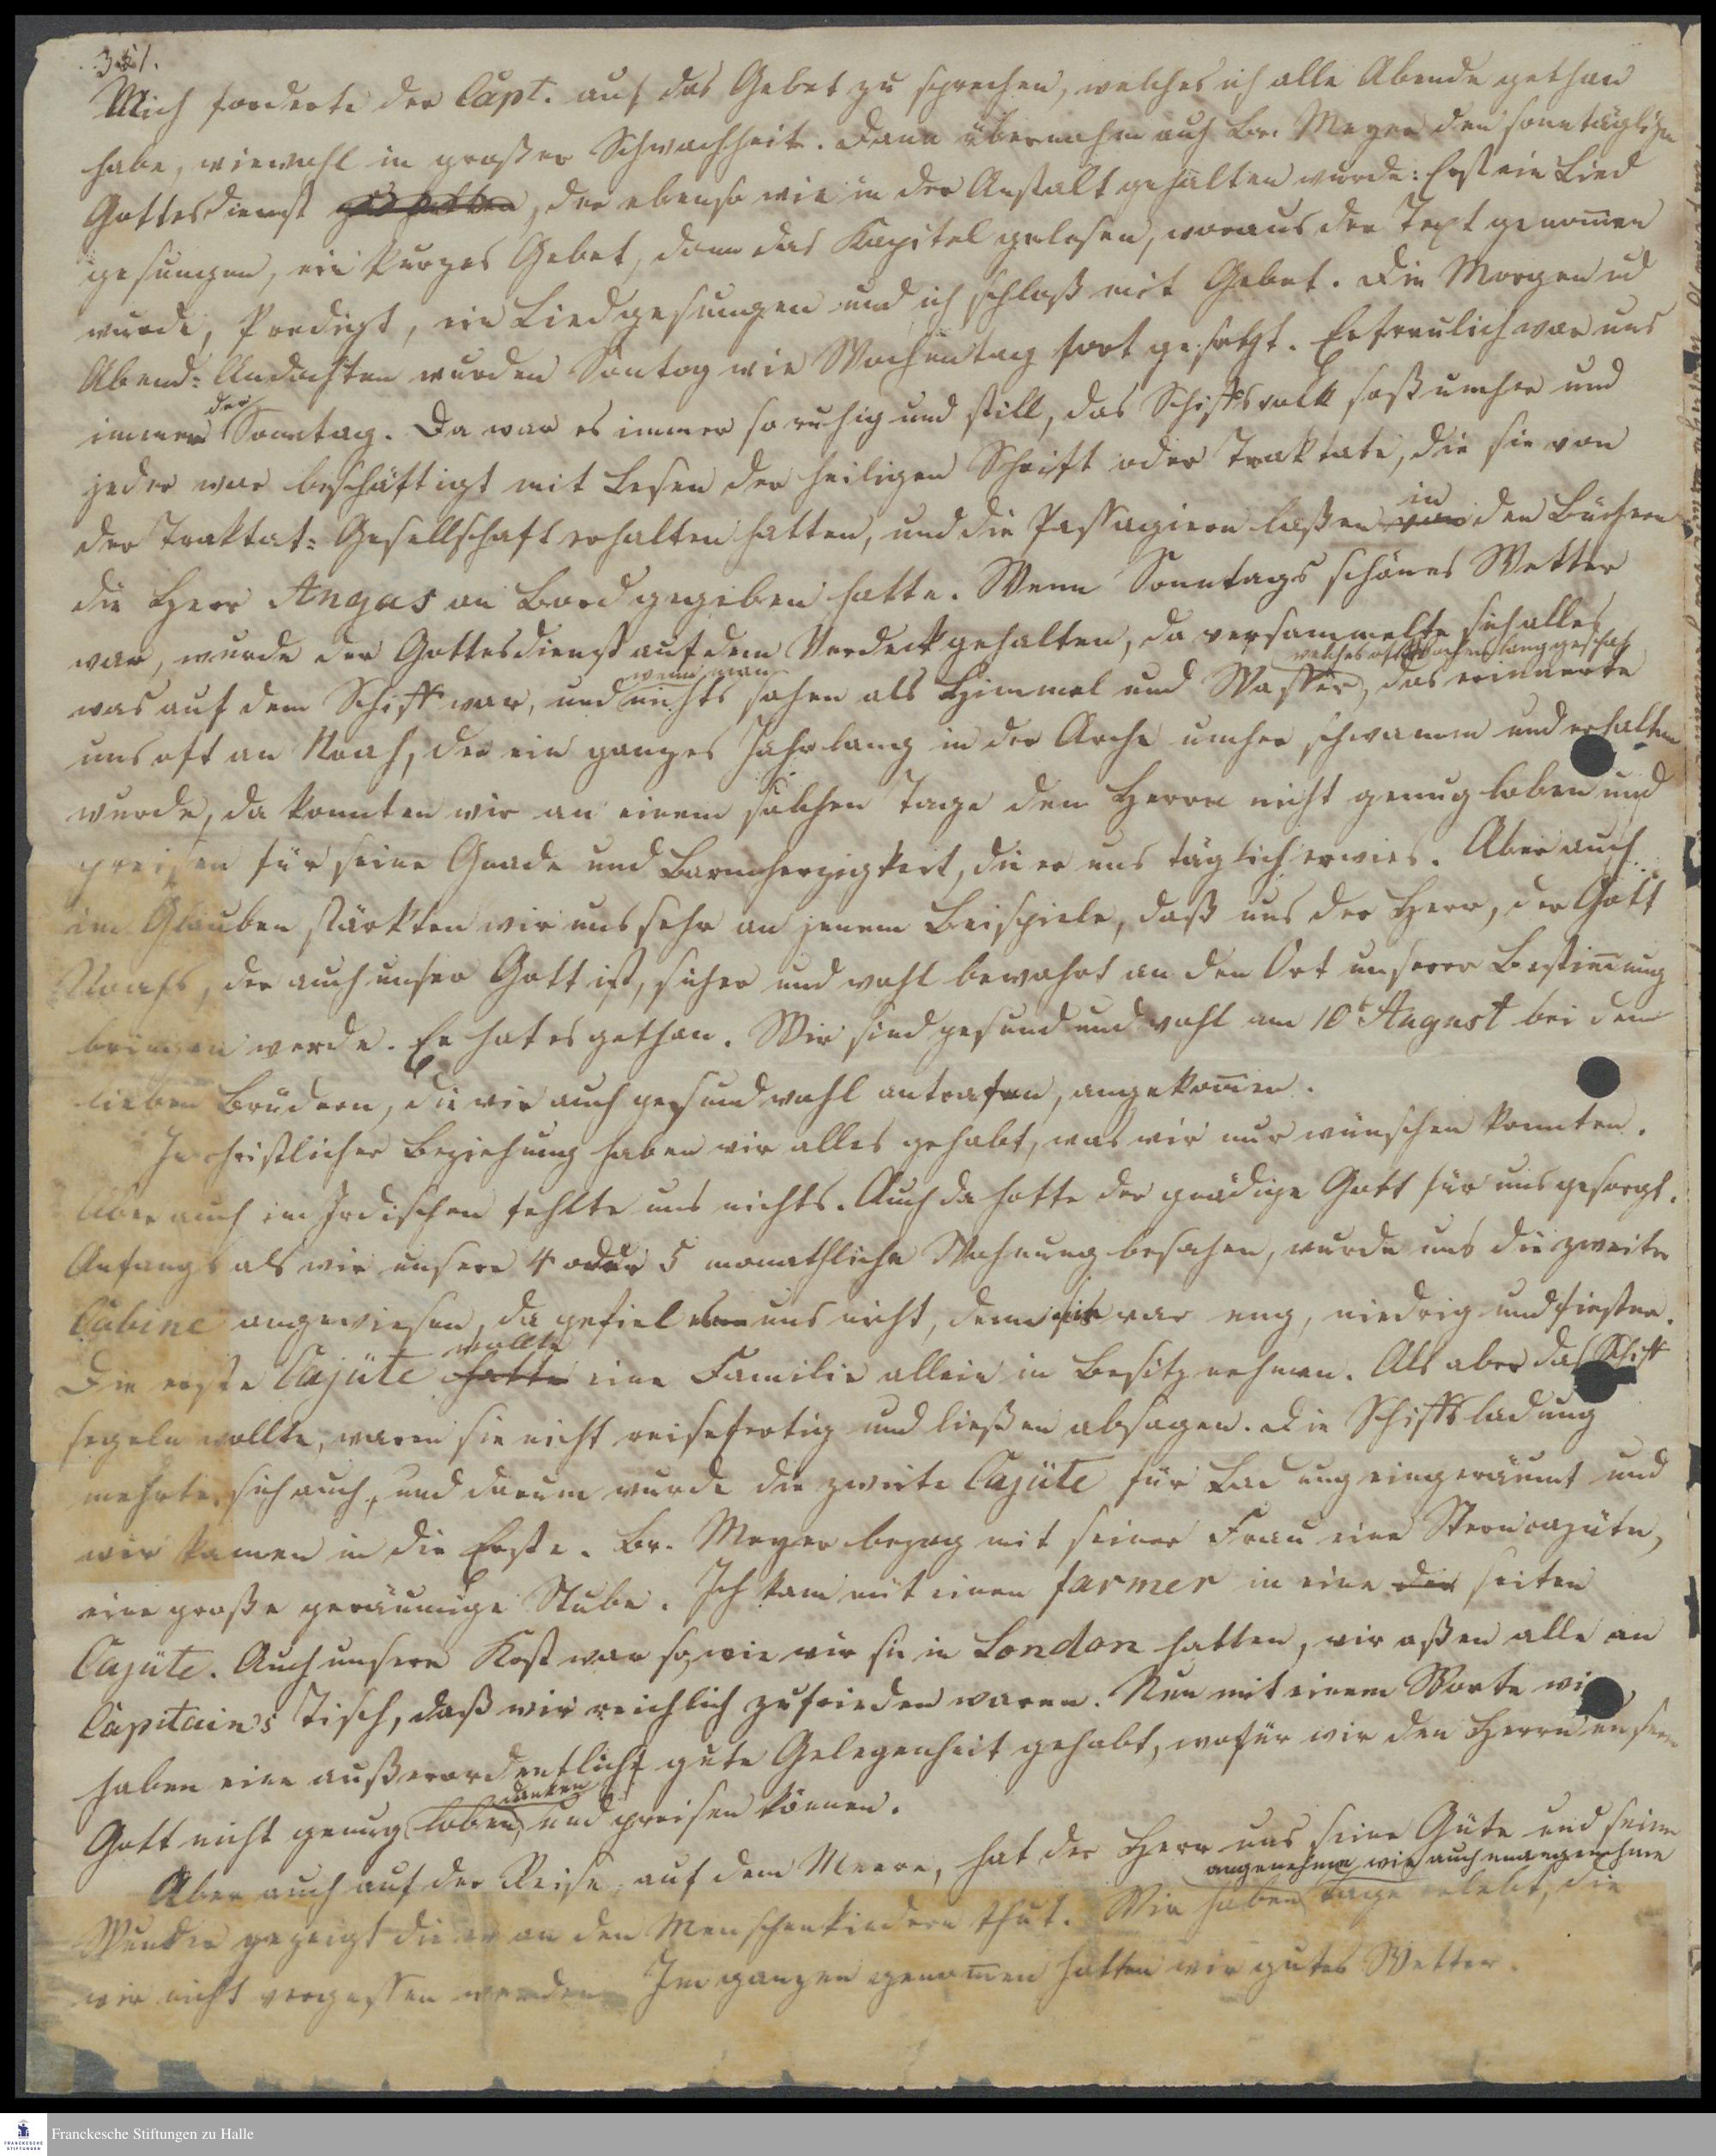 351.
Mich forderte der Capt. auf das Gebet zu sprechen, welches ich alle Abende gethan
habe, wiewohl in großer Schwachheit. Dann übernahm auch Br. Meyer den sonntäglichen
Gottesdienst, der ebenso wie in der Anstalt gehalten wurde: Erst ein Lied
gesungen, ein kurzes Gebet, dann das Kapitel gelesen, woraus der Text genomen
wurde, Predigt, ein Lied gesungen und ich schloß mit Gebet. Die Morgen ud
Abend= Andachten wurden Sontag wie Wochentag fort gesetzt. Erfreulich war uns
immer der Sonntag. Da war es immer so ruhig und still, das Schiffsvolk saß umher und
jeder war beschäftigt mit Lesen der heiligen Schrift oder Traktate, die sie von
der Traktat= Gesellschaft erhalten hatten, und die Passagiere laßen in den Büchern
die Herr Angas an Bord gegeben hatte. Wenn Sonntags schönes Wetter
war, wurde der Gottesdienst auf dem Verdeck gehalten, da versammelte sich alles
welches oft Wochen lang geschah
was auf dem Schiff war, und wenn man nichts sahen als Himmel und Wasser, das erinnerte
uns oft an Noah, der ein ganzes Jahr lang in der Arche umher schwamm und erhalten
wurde, da konnten wir an einem solchen Tage den Herrn nicht genug loben und
preisen für seine Gnade und Barmherzigkeit, die er uns täglich erwies. Aber auch
im Glauben stärkten wir uns sehr an jenem Beispiele, daß uns der Herr, der Gott
Noahs, der auch unser Gott ist, sicher und wohl bewahrt an den Ort unserer Bestimung
bringen werde. Er hat es gethan. Wir sind gesund und wohl am 10t August bei den
lieben Brüdern, die wir auch gesund wohl antrafen, angekomen.
In christlicher Beziehung haben wir alles gehabt, was wir nur wünschen konnten.
Aber auch im Irdischen fehlte uns nichts. Auch da hatte der gnädige Gott für uns gesorgt.
Anfangs als wir unsere 4 oder 5 monathliche Wohnung besahen, wurde uns die zweite
Cabine angewiesen, da gefiel uns nicht, denn sie war eng, niedrig und finster.
Die erste Cajüte wollte eine Familie allein in Besitz nehmen. Als aber das Schiff
segeln wollte, waren sie nicht reisefertig und ließen absagen. Die Schiffsladung
mehrte sich auch, und darum wurde die zweite Cajüte für Ladung eingeräumt und
wir kamen in die Erste. Br. Meyer bezog mit seiner Frau eine Sterncajüte,
eine große geräumige Stube. Ich kam mit einen farmer in eine seiten
Cajüte. Auch unsere Kost war so, wie wir sie in London hatten, wir aßen alle an
Capitain's Tisch, daß wir reichlich zufrieden waren. Nun mit einem Worte wir
haben eine außerordentlich gute Gelegenheit gehabt, wofür wir den Herrn unsern
Gott nicht genug loben, danken und preisen können.
Aber auch auf der Reise, auf dem Meere, hat der Herr uns seine Güte und seine
angenehme wie auch unangenehme
Wunder gezeigt die er an den Menschenkindern thut. Wir haben tage erlebt, die
wir nicht vergessen werden. Im ganzen genomen hatten wir gutes Wetter.
Franckesche Stiftungen zu Halle